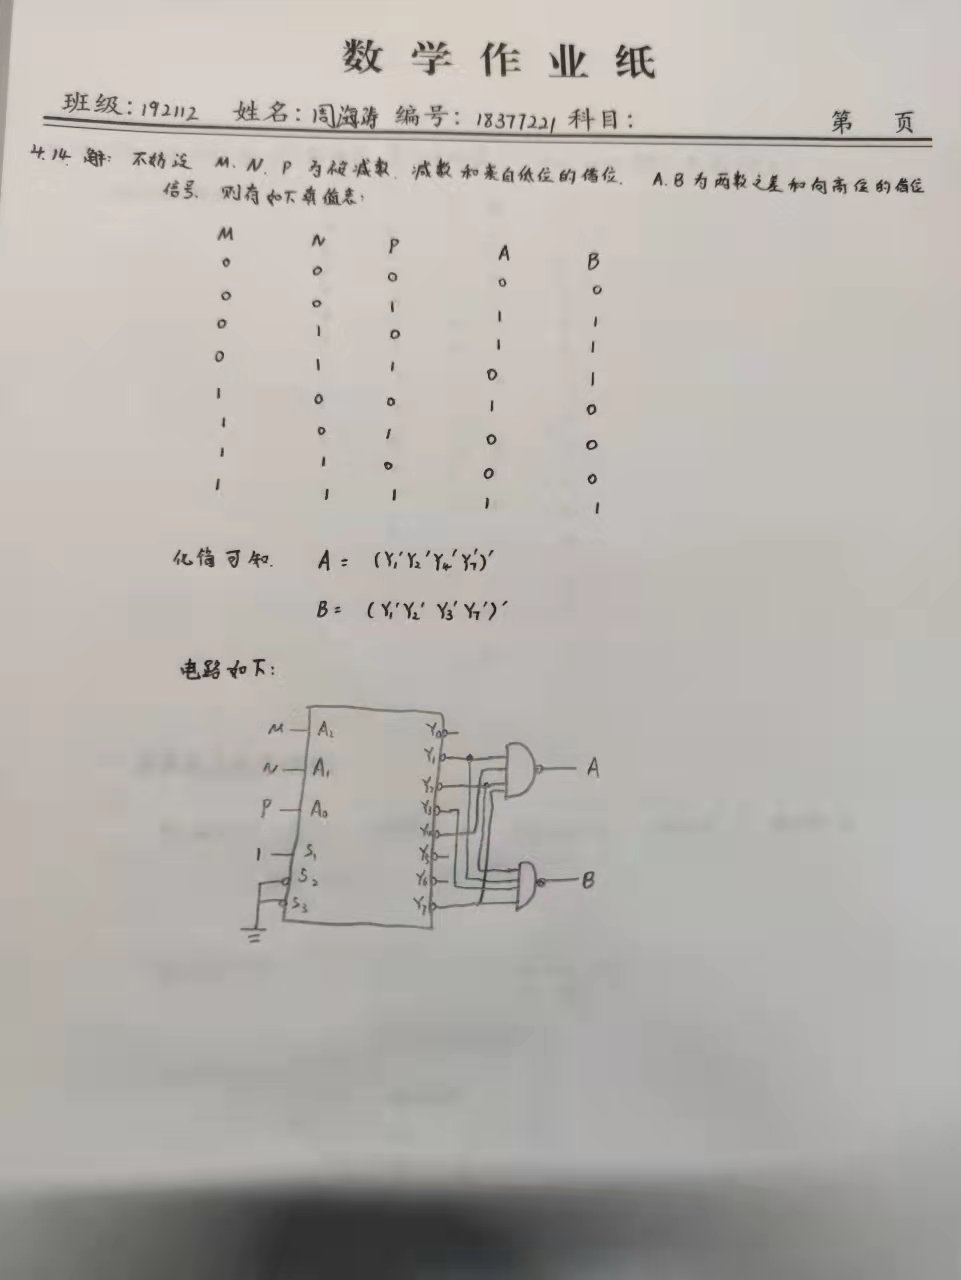 数学作业纸
班级：192112 姓名：周海涛 编号：18377221 科目： 第 页
4.14. 解：不妨设 M、N、P 为被减数、减数和来自低位的借位、A.B 为两数之差和向高位的借位
信号、则有如下真值表：
M N P A B
0 0 0 0 0
0 0 1 1 1
0 1 0 1 1
0 1 1 0 1
1 0 0 1 0
1 0 1 0 0
1 1 0 0 0
1 1 1 1 1
化简可知. A = (Y₁'Y₂'Y₄'Y₇')'
B = (Y₁'Y₂'Y₃'Y₇')'
电路如下：
M A₂ Y₀
Y₁ A
N A₁ Y₂
P A₀ Y₃
Y₄
1 S₁ Y₅
S₂ Y₆ B
S₃ Y₇